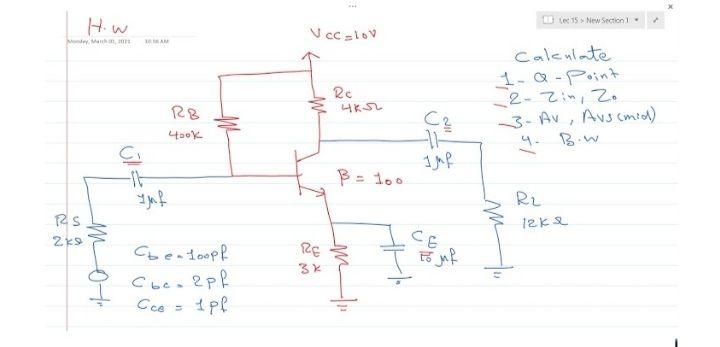 H.w
Monday, March 01, 2021 10:58 AM
Lec 15 > New Section 1
Vcc=10V
Calculate
1- Q-Point
2- Zin, Zo
3- Av, Avs(mid)
4. B.w
RC
4KΩ
RB
400K
C2
1μf
C1
1μf
β = 100
RL
12KΩ
RS
2KΩ
CE
10 μf
RE
3K
Cbe=100pf
Cbc=2pf
Cce = 1pf